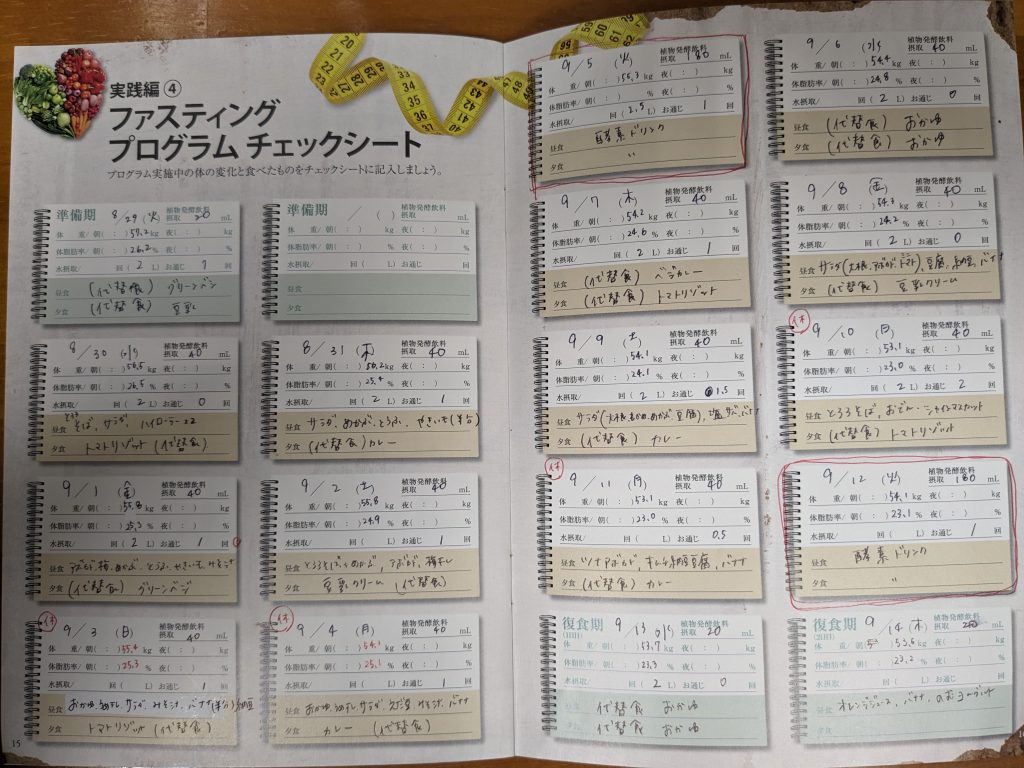 実践編④
ファスティング
プログラム チェックシート
プログラム実施中の体の変化と食べたものをチェックシートに記入しましょう。
準備期 8/29 (火) 植物発酵飲料 摂取 20 mL
体 重/朝( : )57.2kg 夜( : ) kg
体脂肪率/朝( : )26.2% 夜( : ) %
水摂取/ 回( 2 L) お通じ 回
昼食 (代替食) グリーンベジ
夕食 (代替食) 豆乳
準備期 / ( ) 植物発酵飲料 摂取 mL
体 重/朝( : ) kg 夜( : ) kg
体脂肪率/朝( : ) % 夜( : ) %
水摂取/ 回( L) お通じ 回
昼食
夕食
8/30 (水) 植物発酵飲料 摂取 40 mL
体 重/朝( : )56.5kg 夜( : ) kg
体脂肪率/朝( : )26.5% 夜( : ) %
水摂取/ 回( 2 L) お通じ 0 回
昼食 とろろそば、サラダ、
夕食 トマトリゾット (代替食)
8/31 (木) 植物発酵飲料 摂取 40 mL
体 重/朝( : )56.2kg 夜( : ) kg
体脂肪率/朝( : )25.4% 夜( : ) %
水摂取/ 回( 2 L) お通じ 1 回
昼食 サラダ、めかぶ、とうふ、やきいも(半分)
夕食 (代替食) カレー
9/1 (金) 植物発酵飲料 摂取 40 mL
体 重/朝( : )55.8kg 夜( : ) kg
体脂肪率/朝( : )25.3% 夜( : ) %
水摂取/ 回( 2 L) お通じ 1 回
昼食 アボカド、梅、めかぶ、とうふ、やきいも、みそ汁
夕食 (代替食) グリーンベジ
9/2 (土) 植物発酵飲料 摂取 40 mL
体 重/朝( : )55.8kg 夜( : ) kg
体脂肪率/朝( : )24.9% 夜( : ) %
水摂取/ 回( L) お通じ 1 回
昼食 とろろそば、めかぶ、アボカド、梅干し
夕食 豆乳クリーム (代替食)
休
9/3 (日) 植物発酵飲料 摂取 40 mL
体 重/朝( : )55.4kg 夜( : ) kg
体脂肪率/朝( : )25.3% 夜( : ) %
水摂取/ 回( L) お通じ 1 回
昼食 おかゆ、うめぼし、サラダ、みそ汁、バナナ(半分)、納豆
夕食 トマトリゾット (代替食)
休
9/4 (月) 植物発酵飲料 摂取 40 mL
体 重/朝( : )54.1kg 夜( : ) kg
体脂肪率/朝( : )25.1% 夜( : ) %
水摂取/ 回( L) お通じ 1 回
昼食 おかゆ、うめぼし、サラダ、みそ汁、バナナ
夕食 カレー (代替食)
15
9/5 (火) 植物発酵飲料 摂取 180 mL
体 重/朝( : )55.3kg 夜( : ) kg
体脂肪率/朝( : ) % 夜( : ) %
水摂取/ 回( 2.5 L) お通じ 1 回
昼食 酵素ドリンク
夕食 〃
9/6 (水) 植物発酵飲料 摂取 40 mL
体 重/朝( : )54.4kg 夜( : ) kg
体脂肪率/朝( : )24.8% 夜( : ) %
水摂取/ 回( 2 L) お通じ 0 回
昼食 (代替食) おかゆ
夕食 (代替食) おかゆ
9/7 (木) 植物発酵飲料 摂取 40 mL
体 重/朝( : )54.2kg 夜( : ) kg
体脂肪率/朝( : )24.6% 夜( : ) %
水摂取/ 回( 2 L) お通じ 1 回
昼食 (代替食) ベジカレー
夕食 (代替食) トマトリゾット
9/8 (金) 植物発酵飲料 摂取 40 mL
体 重/朝( : )54.3kg 夜( : ) kg
体脂肪率/朝( : )24.2% 夜( : ) %
水摂取/ 回( 2 L) お通じ 0 回
昼食 サラダ(大根、アボカド、ミニトマト)、豆腐、納豆、バナナ
夕食 (代替食) 豆乳クリーム
9/9 (土) 植物発酵飲料 摂取 40 mL
体 重/朝( : )54.1kg 夜( : ) kg
体脂肪率/朝( : )24.1% 夜( : ) %
水摂取/ 回( 2 L) お通じ 1.5 回
昼食 サラダ(大根、わかめ、めかぶ、豆腐)、塩サバ、バナナ
夕食 (代替食) カレー
休
9/10 (日) 植物発酵飲料 摂取 40 mL
体 重/朝( : )53.1kg 夜( : ) kg
体脂肪率/朝( : )23.0% 夜( : ) %
水摂取/ 回( 2 L) お通じ 2 回
昼食 とろろそば、おでん、シャインマスカット
夕食 (代替食) トマトリゾット
休
9/11 (月) 植物発酵飲料 摂取 40 mL
体 重/朝( : )53.1kg 夜( : ) kg
体脂肪率/朝( : )23.0% 夜( : ) %
水摂取/ 回( L) お通じ 0.5 回
昼食 ツナアボカド、キムチ納豆豆腐、バナナ
夕食 (代替食) カレー
9/12 (火) 植物発酵飲料 摂取 180 mL
体 重/朝( : )54.1kg 夜( : ) kg
体脂肪率/朝( : )23.1% 夜( : ) %
水摂取/ 回( L) お通じ 1 回
昼食 酵素ドリンク
夕食 〃
復食期 (1日目) 9/13 (水) 植物発酵飲料 摂取 20 mL
体 重/朝( : )53.7kg 夜( : ) kg
体脂肪率/朝( : )23.3% 夜( : ) %
水摂取/ 回( 2 L) お通じ 0 回
昼食 代替食 おかゆ
夕食 代替食 おかゆ
復食期 (2日目) 9/14 (木) 植物発酵飲料 摂取 20 mL
体 重/朝( : )53.6kg 夜( : ) kg
体脂肪率/朝( : )23.2% 夜( : ) %
水摂取/ 回( L) お通じ 回
昼食 オレンジジュース、バナナ、ヨーグルト
夕食